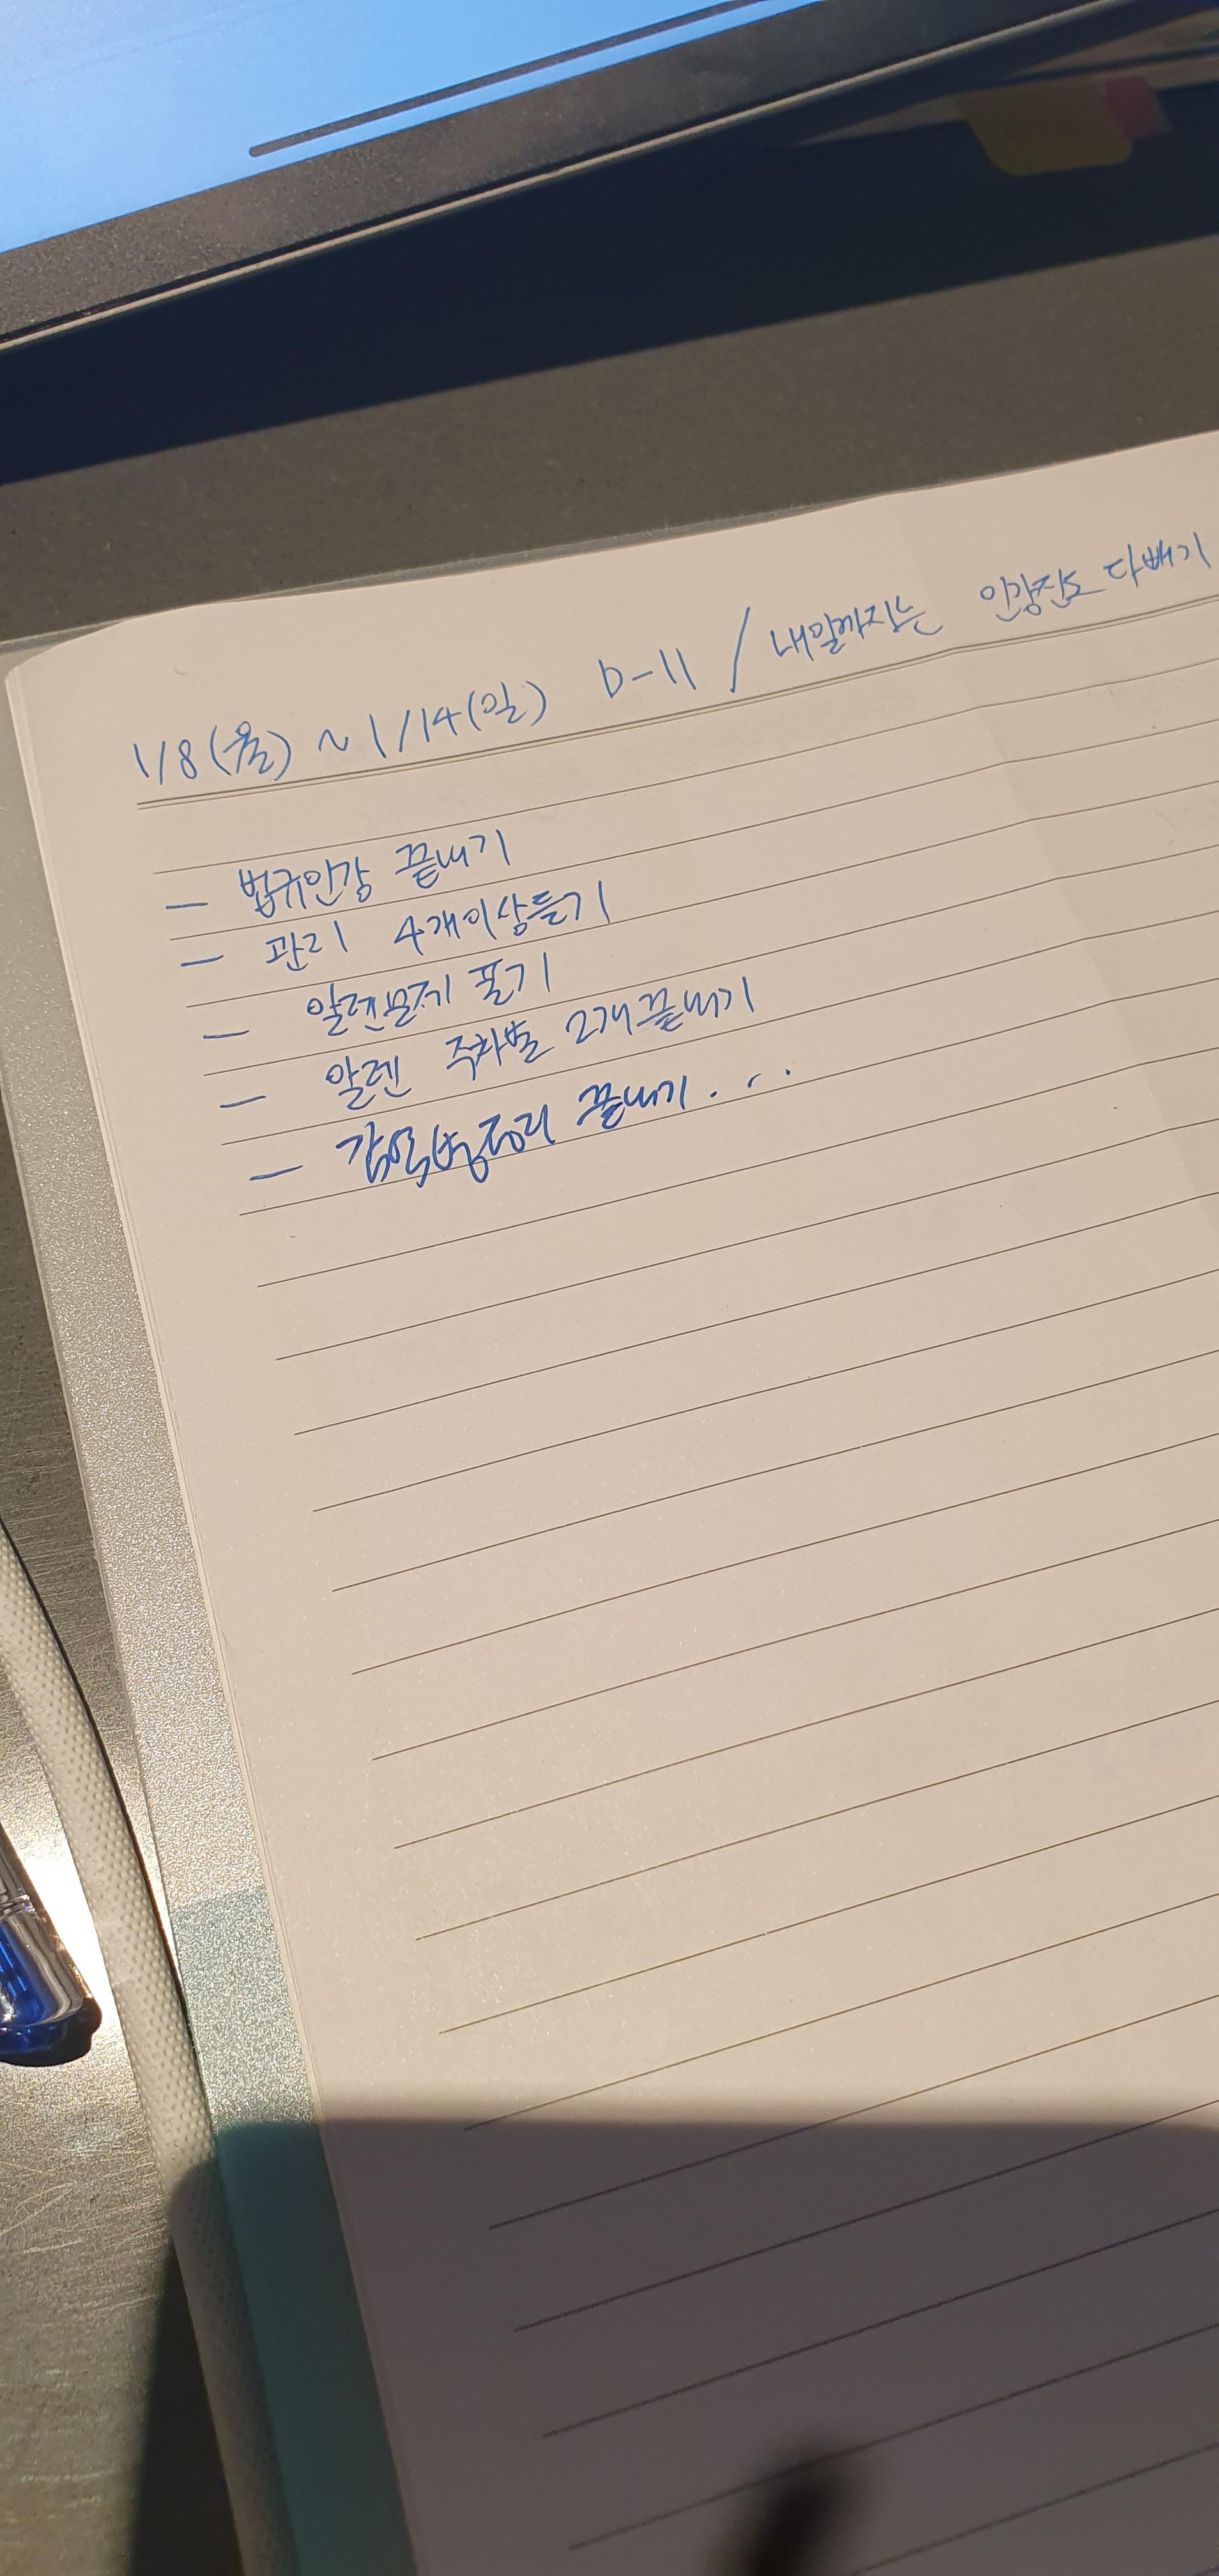 1/8(월) ~ 1/14(일) D-11 / 내일까지는 인강진도 다빼기
- 법규인강 끝내기
- 관리 4개이상듣기
- 알렌문제 풀기
- 알렌 주차별 2개끝내기
- 감염병정리 끝내기...